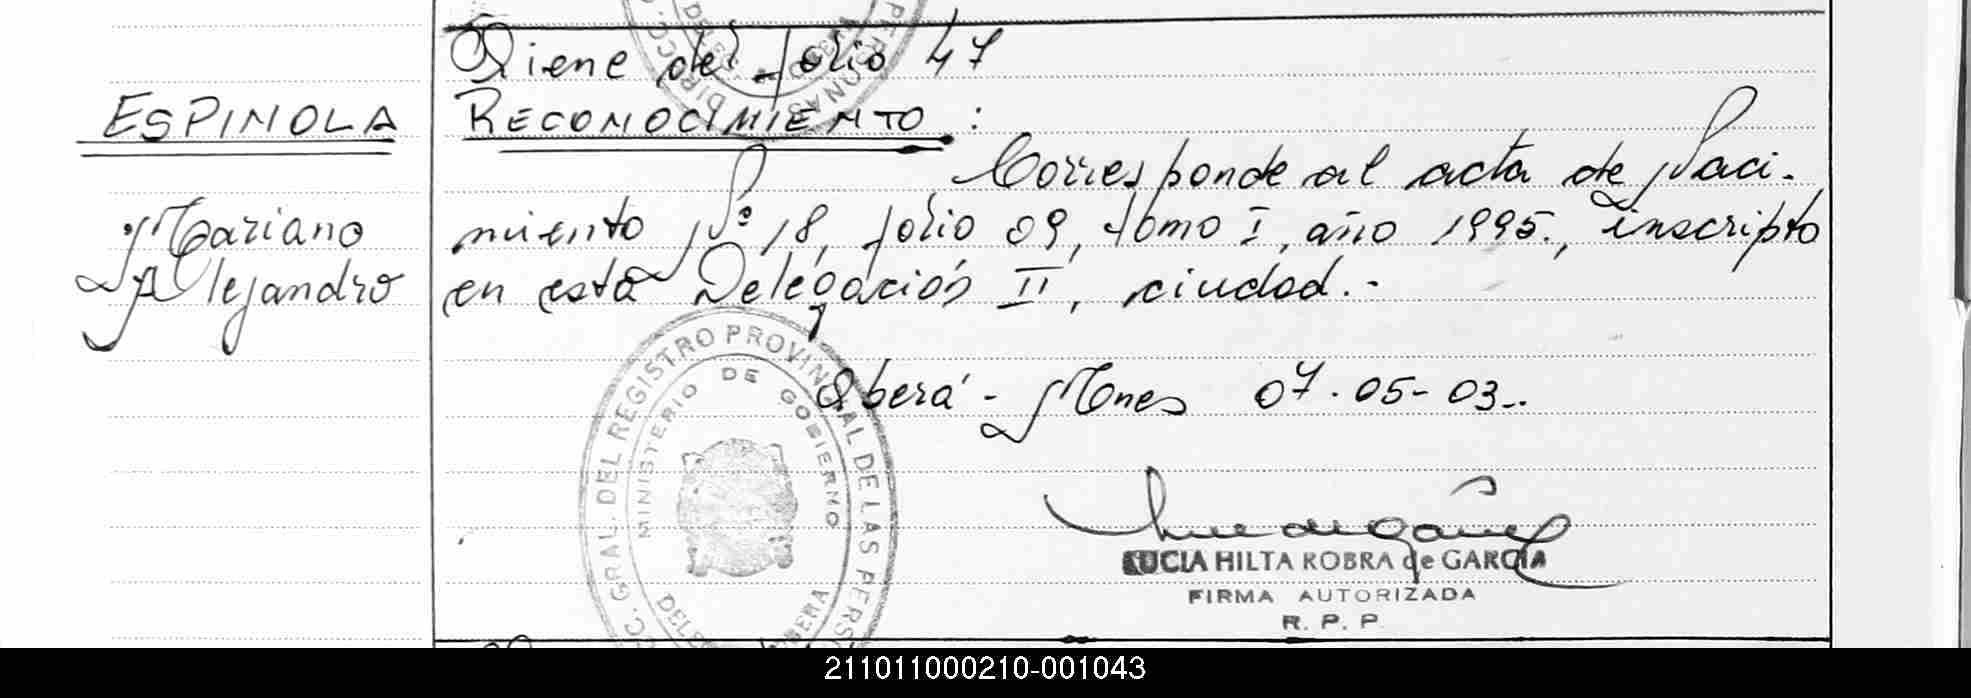 Viene del folio 47
ESPINOLA
Mariano
Alejandro
RECONOCIMIENTO :
Corresponde al acta de Naci-
miento Nº 18, folio 09, tomo I, año 1995., inscripto
en esta Delegación II, ciudad.-
Oberá - Mnes 07-05-03.-
DIRECC. GRAL. DEL REGISTRO PROVINCIAL DE LAS PERSONAS
MINISTERIO DE GOBIERNO
OBERA
LUCIA HILTA KOBRA de GARCIA
FIRMA AUTORIZADA
R. P. P.
211011000210-001043